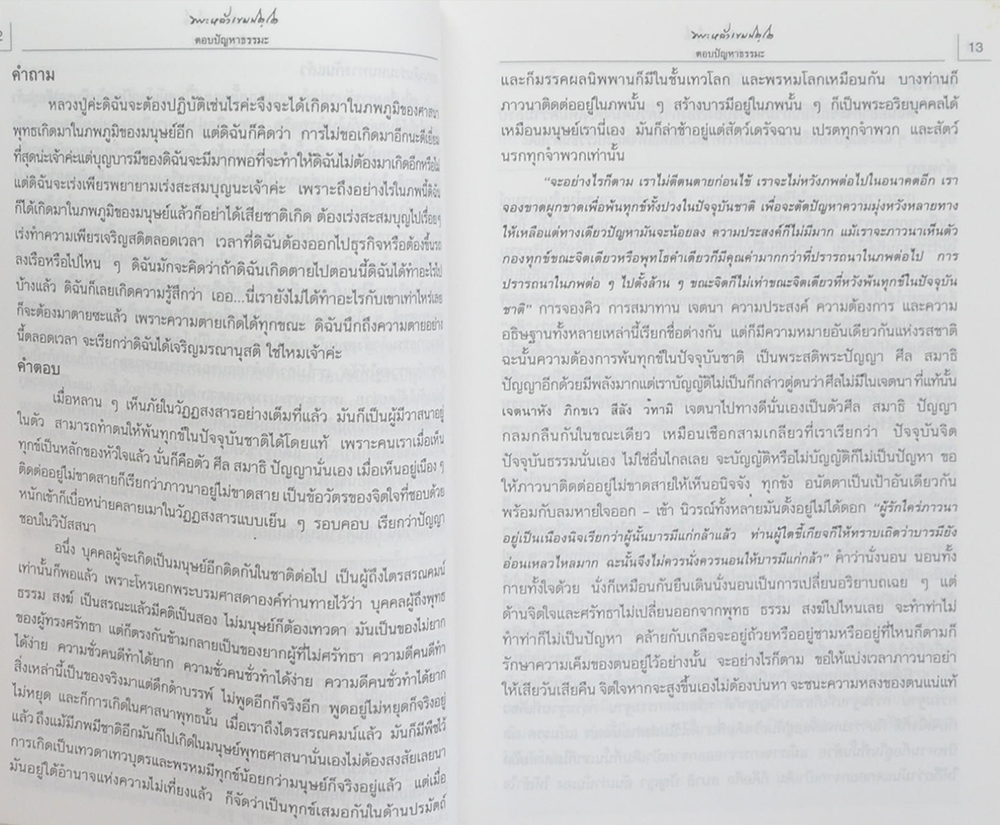 2
พระหล้าเขมปตฺโต
ตอบปัญหาธรรมะ
คำถาม
หลวงปู่ค่ะดิฉันจะต้องปฏิบัติเช่นไรค่ะจึงจะได้เกิดมาในภพภูมิของศาสนา
พุทธเกิดมาในภพภูมิของมนุษย์อีก แต่ดิฉันก็คิดว่า การไม่ขอเกิดมาอีกนะดีเยี่ยม
ที่สุดน่ะเจ้าค่ะแต่บุญบารมีของดิฉันจะมีมากพอที่จะทำให้ดิฉันไม่ต้องมาเกิดอีกหรือไม่
แต่ดิฉันจะเร่งเพียรพยายามเร่งสะสมบุญนะเจ้าค่ะ เพราะถึงอย่างไรในภพนี้ดิฉัน
ก็ได้เกิดมาในภพภูมิของมนุษย์แล้วก็อย่าได้เสียชาติเกิด ต้องเร่งสะสมบุญไปเรื่อยๆ
เร่งทำความเพียรเจริญสติตลอดเวลา เวลาที่ดิฉันต้องออกไปธุรกิจหรือต้องขึ้นรถ
ลงเรือหรือไปไหน ๆ ดิฉันมักจะคิดว่าถ้าดิฉันเกิดตายไปตอนนี้ดิฉันได้ทำอะไรไป
บ้างแล้ว ดิฉันก็เลยเกิดความรู้สึกว่า เออ...นี่เรายังไม่ได้ทำอะไรกับเขาเท่าไหร่เลย
ก็จะต้องมาตายซะแล้ว เพราะความตายเกิดได้ทุกขณะ ดิฉันนึกถึงความตายอย่าง
นี้ตลอดเวลา จะเรียกว่าดิฉันได้เจริญมรณานุสติ ใช่ไหมเจ้าค่ะ
คำตอบ
เมื่อหลาน ๆ เห็นภัยในวัฏฏสงสารอย่างเต็มที่แล้ว มันก็เป็นผู้มีวาสนาอยู่
ในตัว สามารถทำตนให้พ้นทุกข์ในปัจจุบันชาติได้โดยแท้ เพราะคนเราเมื่อเห็น
ทุกข์เป็นหลักของหัวใจแล้ว นั่นก็คือตัว ศีล สมาธิ ปัญญานั่นเอง เมื่อเห็นอยู่เนือง ๆ
ติดต่ออยู่ไม่ขาดสายก็เรียกว่าภาวนาอยู่ไม่ขาดสาย เป็นข้อวัตรของจิตใจที่ชอบด้วย
หนักเข้าก็เบื่อหน่ายคลายเมาในวัฏฏสงสารแบบเย็น ๆ รอบคอบ เรียกว่าปัญญา
ชอบในวิปัสสนา
อนึ่ง บุคคลผู้จะเกิดเป็นมนุษย์อีกติดกันในชาติต่อไป เป็นผู้ถึงไตรสรณคมน์
เท่านั้นก็พอแล้ว เพราะโหรเอกพระบรมศาสดาองค์ท่านทายไว้ว่า บุคคลผู้ถึงพุทธ
ธรรม สงฆ์ เป็นสรณะแล้วมีคติเป็นสอง ไม่มนุษย์ก็ต้องเทวดา มันเป็นของไม่ยาก
ของผู้ทรงศรัทธา แต่ก็ตรงกันข้ามกลายเป็นของยากผู้ที่ไม่ศรัทธา ความดีคนดีทำ
ได้ง่าย ความชั่วคนดีทำได้ยาก ความชั่วคนชั่วทำได้ง่าย ความดีคนชั่วทำได้ยาก
สิ่งเหล่านี้เป็นของจริงมาแต่ดึกดำบรรพ์ ไม่พูดอีกก็จริงอีก พูดอยู่ไม่หยุดก็จริงอยู่
ไม่หยุด และก็การเกิดในศาสนาพุทธนั้น เมื่อเราถึงไตรสรณคมน์แล้ว มันก็มีพืชไว้
แล้ว ถึงแม้มีภพมีชาติอีกมันก็ไปเกิดในมนุษย์พุทธศาสนานั่นเองไม่ต้องสงสัยเลยนา
การเกิดเป็นเทวดาเทวบุตรและพรหมมีทุกข์น้อยกว่ามนุษย์ก็จริงอยู่แล้ว แต่เมื่อ
มันอยู่ใต้อำนาจแห่งความไม่เที่ยงแล้ว ก็จัดว่าเป็นทุกข์เสมอกันในด้านปรมัตถ์
พระหล้าเขมปตฺโต
ตอบปัญหาธรรมะ
13
และก็มรรคผลนิพพานก็มีในชั้นเทวโลก และพรหมโลกเหมือนกัน บางท่านก็
ภาวนาติดต่ออยู่ในภพนั้น ๆ สร้างบารมีอยู่ในภพนั้น ๆ ก็เป็นพระอริยบุคคลได้
เหมือนมนุษย์เรานี่เอง มันก็ล่าช้าอยู่แต่สัตว์เดรัจฉาน เปรตทุกจำพวก และสัตว์
นรกทุกจำพวกเท่านั้น
“จะอย่างไรก็ตาม เราไม่ตีตนตายก่อนไข้ เราจะไม่หวังภพต่อไปในอนาคตอีก เรา
จองขาดผูกขาดเพื่อพ้นทุกข์ทั้งปวงในปัจจุบันชาติ เพื่อจะตัดปัญหาความมุ่งหวังหลายทาง
ให้เหลือแต่ทางเดียวปัญหามันจะน้อยลง ความประสงค์ก็ไม่มีมาก แม้เราจะภาวนาเห็นตัว
กองทุกข์ขณะจิตเดียวหรือพุทโธคำเดียวก็มีคุณค่ามากกว่าที่ปรารถนาในภพต่อไป การ
ปรารถนาในภพต่อ ๆ ไปตั้งล้าน ๆ ขณะจิตก็ไม่เท่าขณะจิตเดียวที่หวังพ้นทุกข์ในปัจจุบัน
ชาติ” การจองคิว การสมาทาน เจตนา ความประสงค์ ความต้องการ และความ
อธิษฐานทั้งหลายเหล่านี้เรียกชื่อต่างกัน แต่ก็มีความหมายอันเดียวกันแห่งรสชาติ
ฉะนั้นความต้องการพ้นทุกข์ในปัจจุบันชาติ เป็นพระสติพระปัญญา ศีล สมาธิ
ปัญญาอีกด้วยมีพลังมากแต่เราบัญญัติไม่เป็นก็กล่าวตู่ตนว่าศีลไม่มีในเจตนา ที่แท้นั้น
เจตนาหัง ภิกขเว สีลัง วทามิ เจตนาไปทางดีนั่นเองเป็นตัวศีล สมาธิ ปัญญา
กลมกลืนกันในขณะเดียว เหมือนเชือกสามเกลียวที่เราเรียกว่า ปัจจุบันจิต
ปัจจุบันธรรมนั่นเอง ไม่ใช่อื่นไกลเลย จะบัญญัติหรือไม่บัญญัติก็ไม่เป็นปัญหา ขอ
ให้ภาวนาติดต่ออยู่ไม่ขาดสายให้เห็นอนิจจัง ทุกขัง อนัตตาเป็นเป้าอันเดียวกัน
พร้อมกับลมหายใจออก - เข้า นิวรณ์ทั้งหลายมันตั้งอยู่ไม่ได้ดอก “ผู้รักใคร่ภาวนา
อยู่เป็นเนืองนิจเรียกว่าผู้นั้นบารมีแก่กล้าแล้ว ท่านผู้ใดขี้เกียจก็ให้ทราบเถิดว่าบารมียัง
อ่อนเหลวไหลมาก ฉะนั้นจึงไม่ควรนั่งควรนอนให้บารมีแก่กล้า” คำว่านั่งนอน นอนทั้ง
กายทั้งใจด้วย นั่งก็เหมือนกันยืนเดินนั่งนอนเป็นการเปลี่ยนอริยาบถเฉย ๆ แต่
ด้านจิตใจและศรัทธาไม่เปลี่ยนออกจากพุทธ ธรรม สงฆ์ไปไหนเลย จะทำท่าไม่
ทำท่าก็ไม่เป็นปัญหา คล้ายกับเกลือจะอยู่ถ้วยหรืออยู่ชามหรืออยู่ที่ไหนก็ตามก็
รักษาความเค็มของตนอยู่ไว้อย่างนั้น จะอย่างไรก็ตาม ขอให้แบ่งเวลาภาวนาอย่า
ให้เสียวันเสียคืน จิตใจหากจะสูงขึ้นเองไม่ต้องบ่นหา จะชนะความหลงของตนแน่แท้